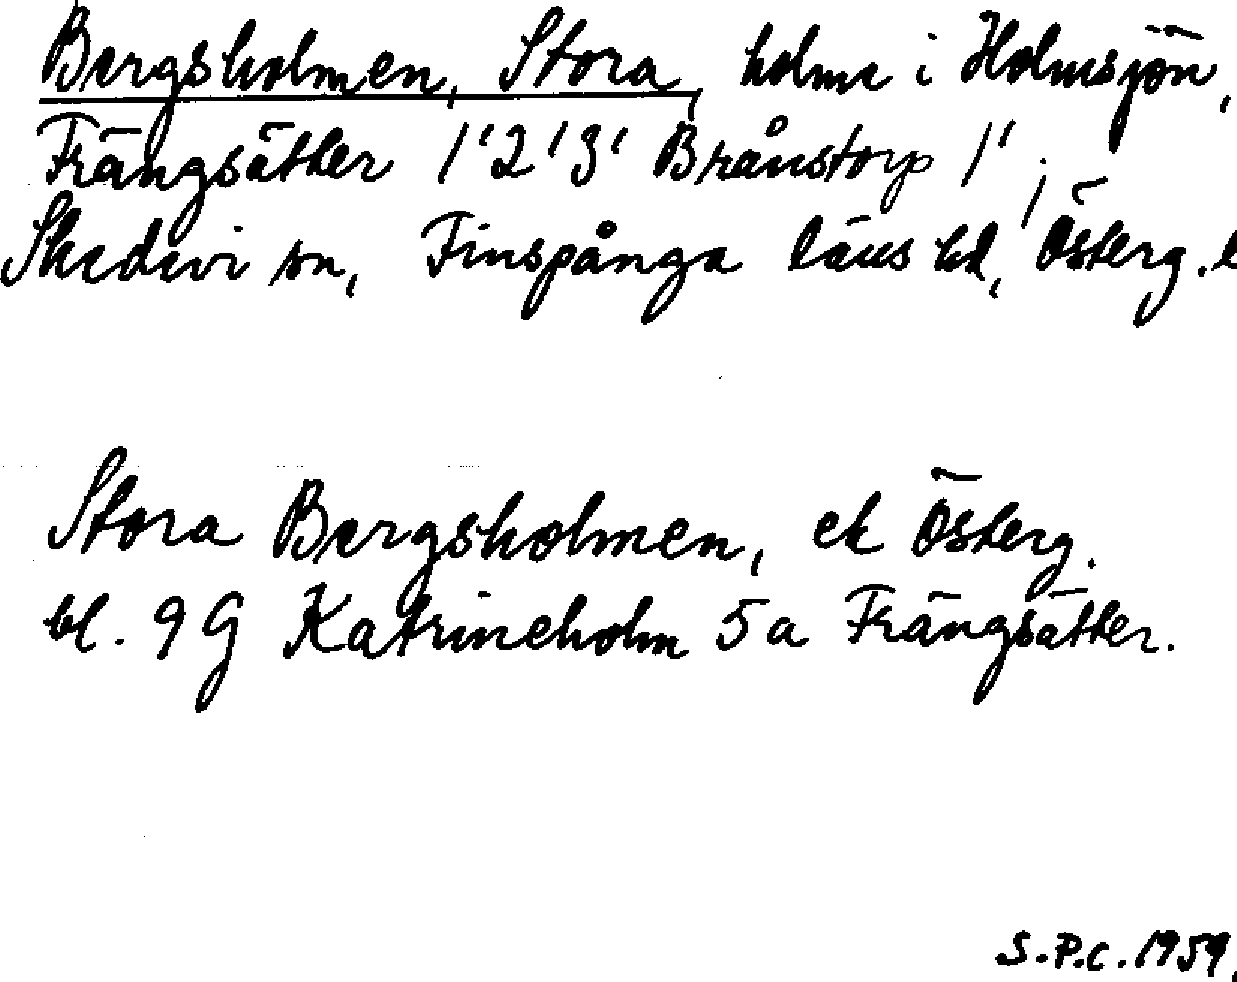 Bergsholmen, Stora, holme i Holmsjön,
Frängsätter 1'2'3' Brånstorp 1';
Skedevi sn, Finspånga läns hd, Österg. l
Stora Bergsholmen, ek Österg.
bl. 9G Katrineholm 5a Frängsätter.
S.P.C. 1959.